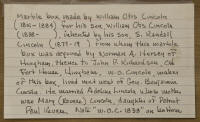 Marble box made by William Otis Lincoln
(1816-1884) for his son William Otis Lincoln
(1838-   ), inherited by his son, S. Randall
Lincoln (1879-19  ) from whom this marble
box was acquired by Norman A. Hersey of
Hingham, thence to John P. Richardson, Old
Fort House, Hingham. W.O. Lincoln maker
of this box, lived next west of Gen. Benjamin
Lincoln. He married Adeline Lincoln whose mother
was Mary (Revere) Lincoln, daughter of Patriot
Paul Revere. Note "W.O.L. 1838" on